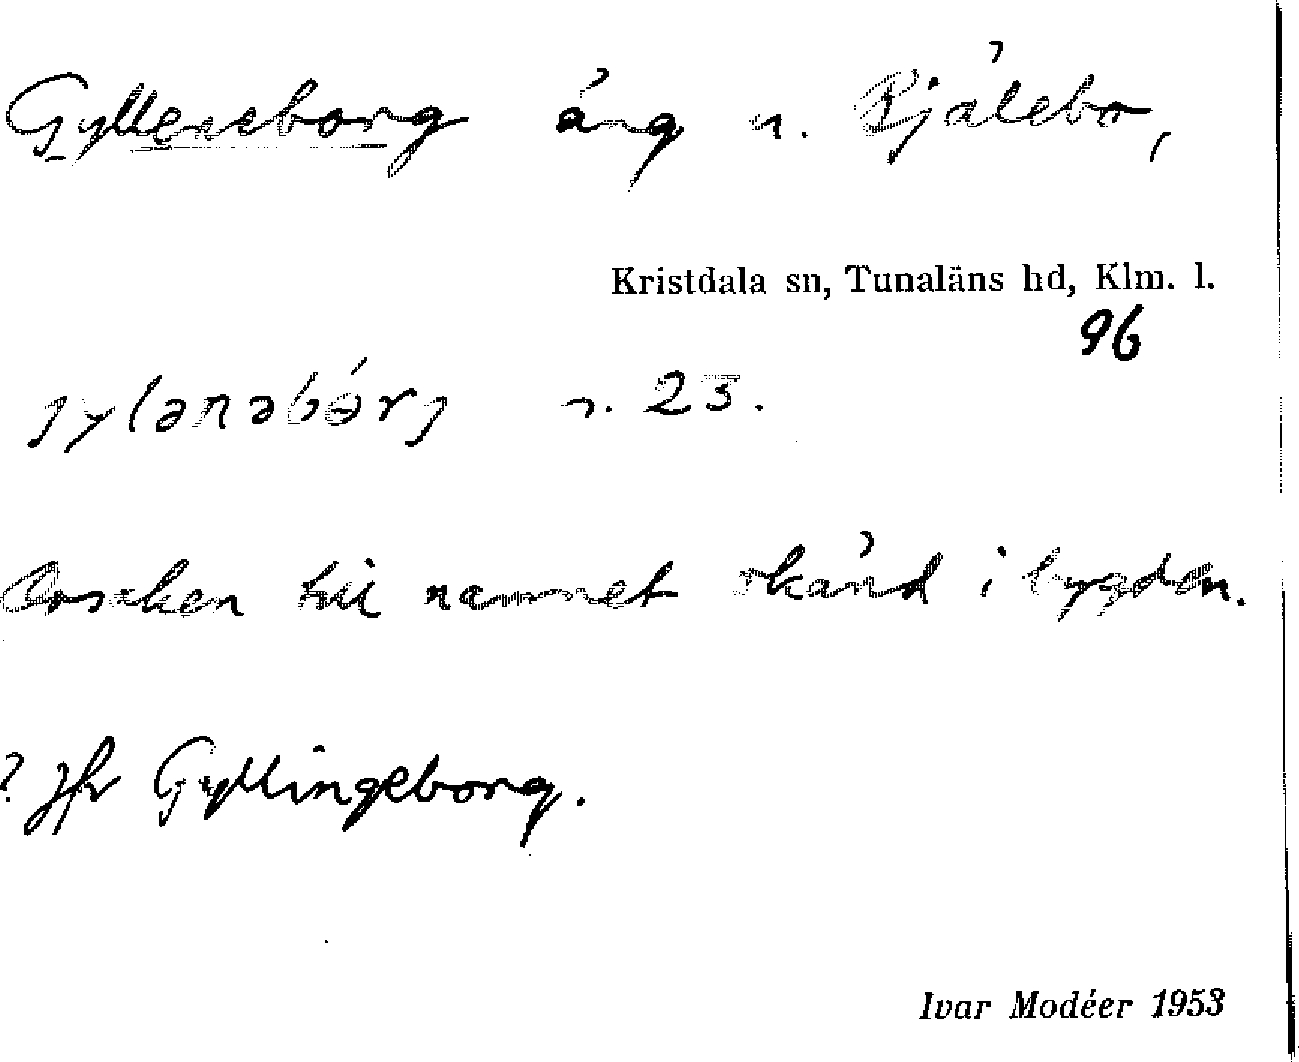 Gylleneborg äng u. Bjälebo,
Kristdala sn, Tunaläns hd, Klm. l.
96
ȷylənəbårȷ n. 23.
Orsaken till namnet okänd i bygden.
? Jfr Gyllingeborg.
Ivar Modéer 1953